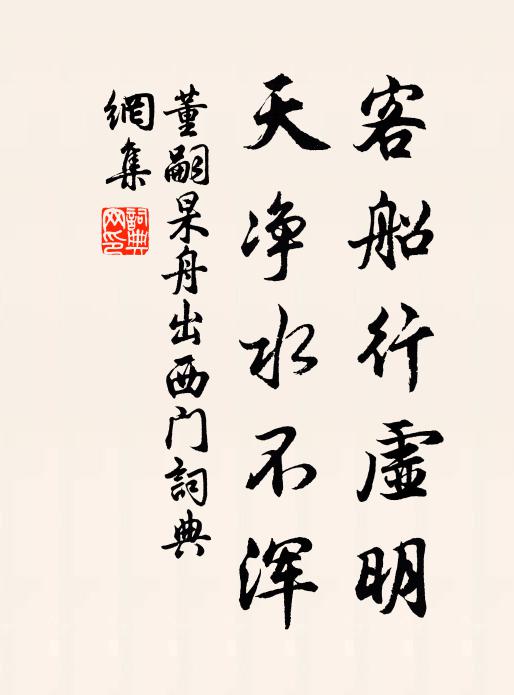 客船行虛明
天净水不浑
董嗣杲舟出西门詞典
網集
詞典網印